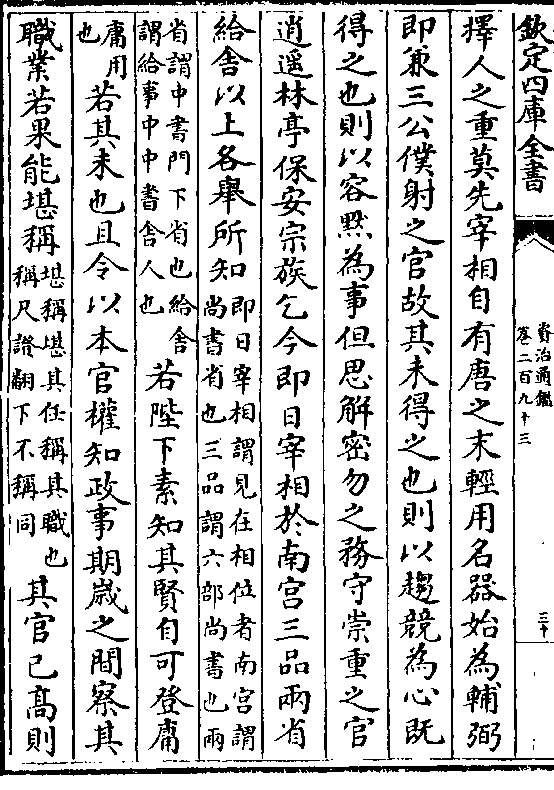 欽定四庫全書
資治通鑑
卷二百九十三
三十
擇人之重莫先宰相自有唐之末輕用名器始為輔弼
即兼三公僕射之官故其未得之也則以趨競為心既
得之也則以容黙為事但思解密勿之務守崇重之官
逍遥林亭保安宗族乞今即日宰相於南宫三品兩省
給舍以上各舉所知即日宰相謂見在相位者南宫謂尚書省也三品謂六部尚書也兩
省謂中書門下省也給舍謂給事中中書舍人也若陛下素知其賢自可登庸
庸用也若其未也且令以本官權知政事期歲之間察其
職業若果能堪稱堪稱堪其任稱其職也稱尺證翻下不稱同其官已高則